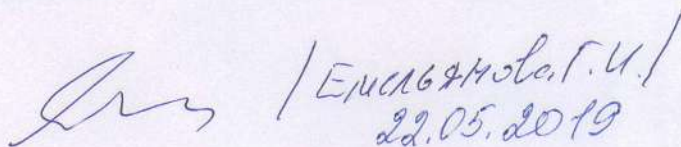 /Емельянова Г.И./
22.05.2019